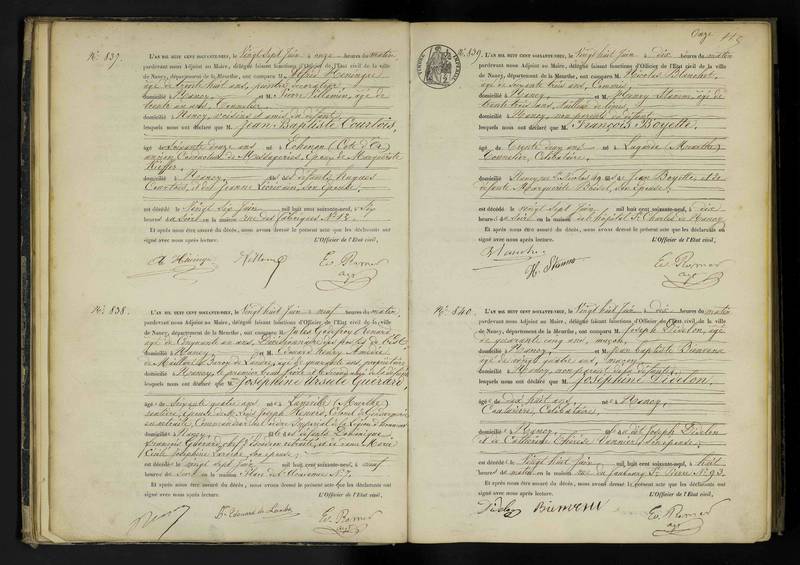 N° 837.
L'AN MIL HUIT CENT SOIXANTE-NEUF, le Vingt Sept Juin à onze heures du matin
pardevant nous Adjoint au Maire, délégué faisant fonctions d'Officier de l'État civil de la ville
de Nancy, département de la Meurthe, ont comparu M. Alfred
âgé de trente huit ans, peintre décorateur,
domicilié à Nancy et M. Pierre Villemin, âgé de
trente un ans, Cannelier
domicilié à Nancy, voisins et amis du défunt
lesquels nous ont déclaré que M. Jean Baptiste Courtois,
âgé de Soixante douze ans né à (Côte d'Or)
ancien Conducteur de Messageries, Epoux de Marguerite
Kieffer
domicilié à Nancy, fils des défunts Hugues
Courtois et de Jeanne son épouse
est décédé le Vingt Six Juin mil huit cent soixante-neuf, à Six
heures du Soir en la maison rue des fabriques N° 13.
Et après nous être assuré du décès, nous avons dressé le présent acte que les déclarants ont
signé avec nous après lecture. L'Officier de l'État civil,
N° 838.
L'AN MIL HUIT CENT SOIXANTE-NEUF, le Vingt huit Juin à neuf heures du matin,
pardevant nous Adjoint au Maire, délégué faisant fonctions d'Officier de l'État civil de la ville
de Nancy, département de la Meurthe, ont comparu M. Jules Godefroy Renard
âgé de Cinquante un ans, Directionnaire des postes
domicilié à Nancy et M. Edouard Henry
âgé de quarante ans, propriétaire
domicilié à Nancy, le premier beau frère et le second
lesquels nous ont déclaré que M. Joséphine Ursule Guérard,
âgée de Soixante quatre ans née à Lunéville (Meurthe)
rentière, épouse de M. Louis Joseph Renard, Colonel de Gendarmerie
en retraite, Commandeur de l'ordre Impérial de la Légion d'honneur
domiciliée à Nancy, fille des défunts Dominique
François Guérard, chef d'escadron retraité, et de dame Marie
Cécile Joséphine son épouse
est décédée le vingt sept Juin mil huit cent soixante-neuf, à neuf
heures du Soir en la maison
Et après nous être assuré du décès, nous avons dressé le présent acte que les déclarants ont
signé avec nous après lecture. L'Officier de l'État civil,
Onze 115
N° 839.
L'AN MIL HUIT CENT SOIXANTE-NEUF, le Vingt huit Juin à Dix heures du matin
pardevant nous Adjoint au Maire, délégué faisant fonctions d'Officier de l'État civil de la ville
de Nancy, département de la Meurthe, ont comparu M. Nicolas
âgé de Soixante trois ans, Commis
domicilié à Nancy et M. Henry âgé de
trente trois ans,
domicilié à Nancy, non parents du défunt
lesquels nous ont déclaré que M. François Boyette,
âgé de Trente deux ans né à (Meurthe)
Tonnelier, Célibataire
domicilié à Nancy, rue St Nicolas fils de Jean Boyette, et de
défunte Marguerite son épouse
est décédé le Vingt sept Juin mil huit cent soixante-neuf, à dix
heures du Soir en la maison de l'hôpital St Charles de Nancy
Et après nous être assuré du décès, nous avons dressé le présent acte que les déclarants ont
signé avec nous après lecture. L'Officier de l'État civil,
N° 840.
L'AN MIL HUIT CENT SOIXANTE-NEUF, le Vingt huit Juin à dix heures du matin
pardevant nous Adjoint au Maire, délégué faisant fonctions d'Officier de l'État civil de la ville
de Nancy, département de la Meurthe, ont comparu M. Joseph Didelon, âgé
de quarante cinq ans, maçon,
domicilié à Nancy et M. Jean Baptiste Bienvenu
âgé de vingt quatre ans, maçon
domicilié à Nancy,
lesquels nous ont déclaré que M. Joséphine Didelon,
âgée de Dix huit ans née à Nancy,
Couturière, Célibataire,
domiciliée à Nancy, fille de Joseph Didelon
et de Catherine Thérèse Vannier, son épouse
est décédée le Vingt huit Juin mil huit cent soixante-neuf, à huit
heures du matin en la maison rue du faubourg St Pierre N° 93.
Et après nous être assuré du décès, nous avons dressé le présent acte que les déclarants ont
signé avec nous après lecture. L'Officier de l'État civil,